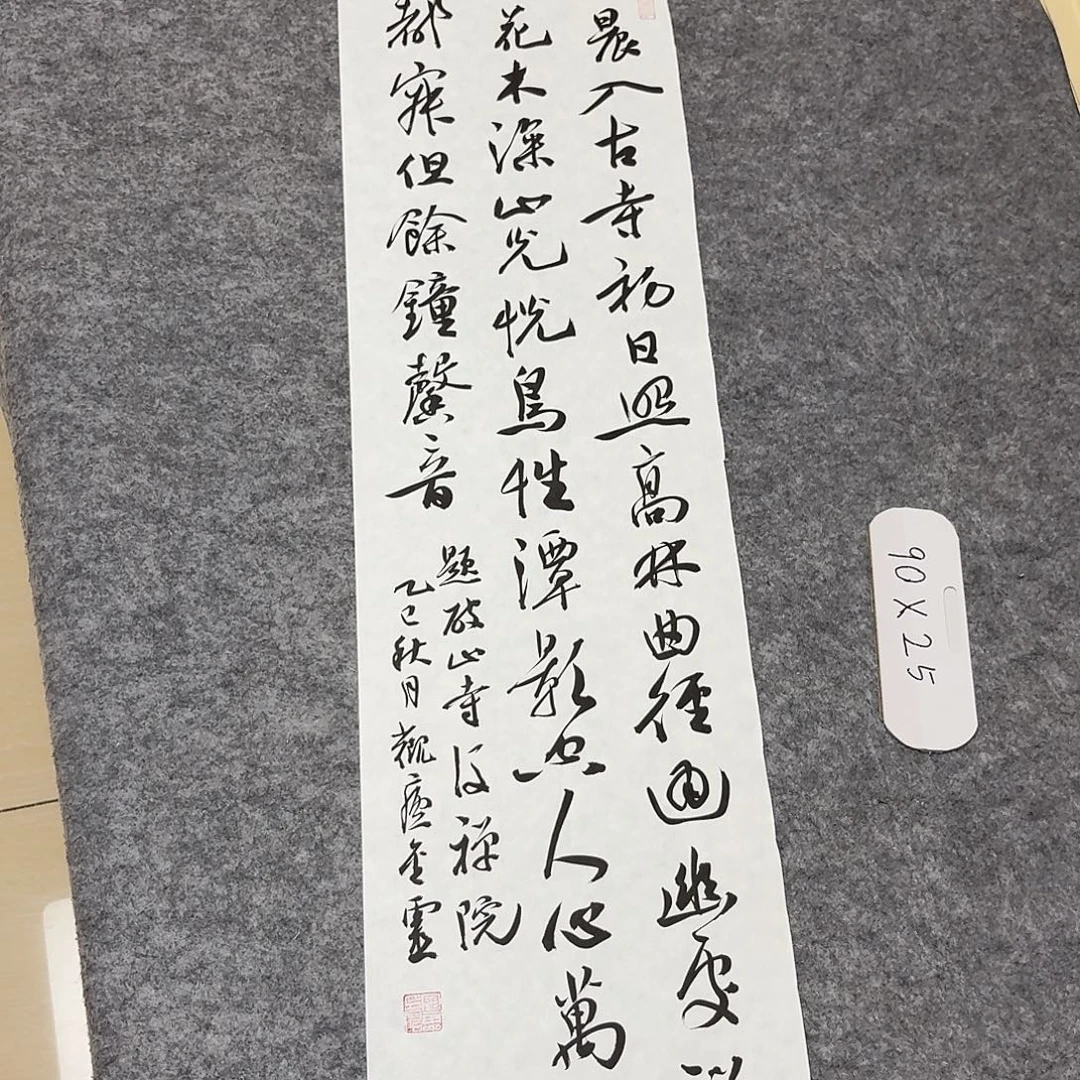 晨入古寺初日照高林曲徑通幽處
花木深山光悦鳥性潭影空人心萬
都寂但餘鐘磬音
題破山寺後禪院
乙巳秋月觀
90X25